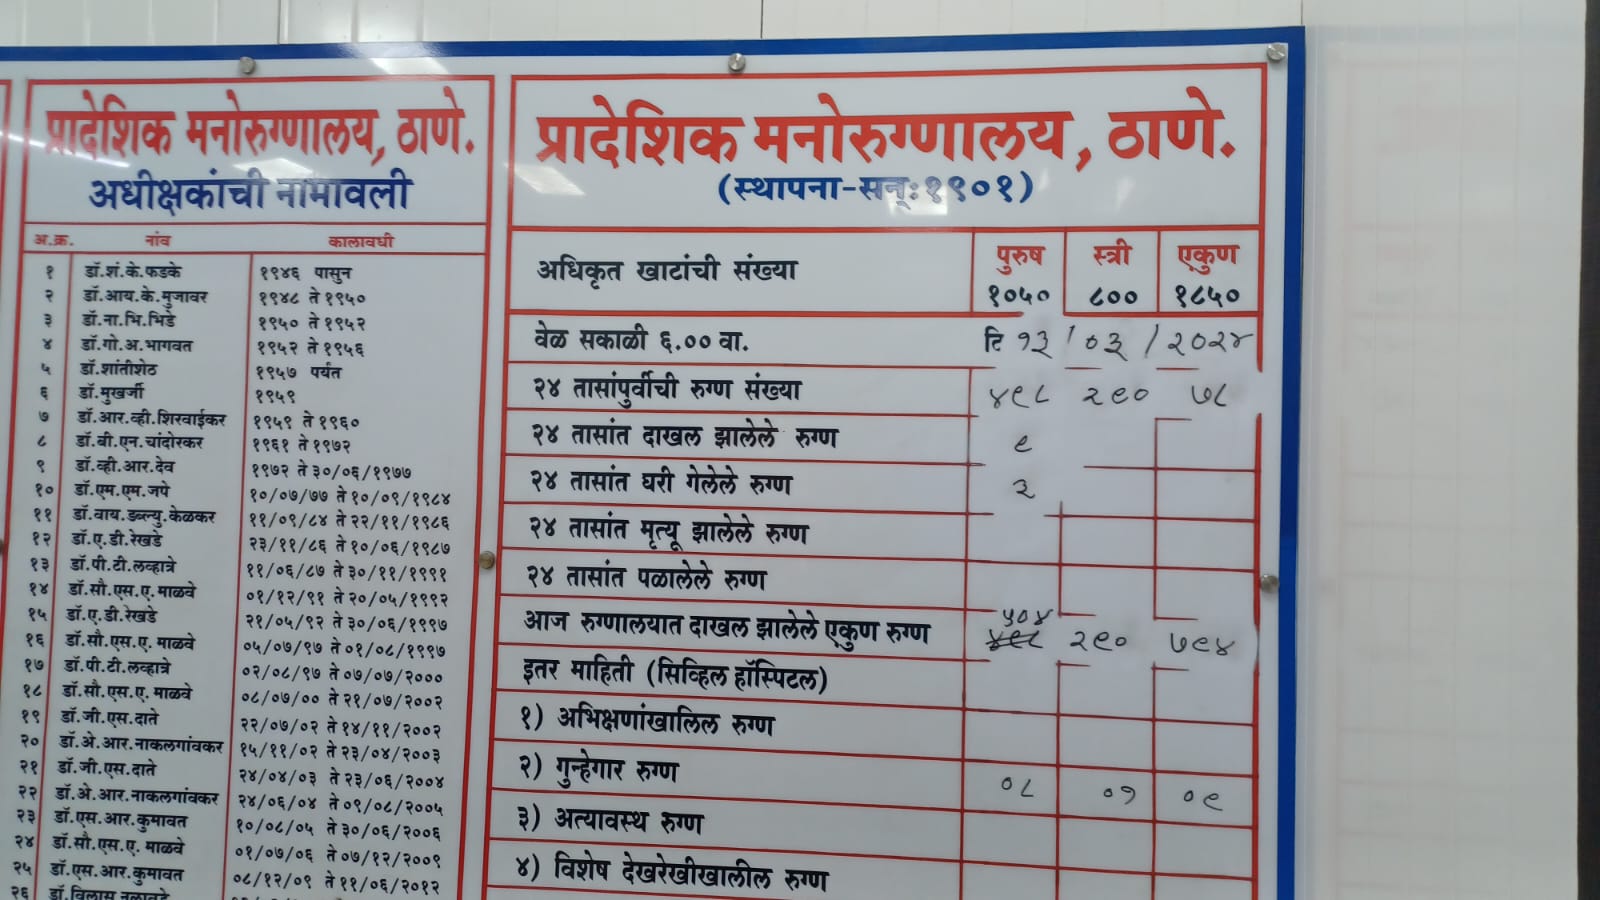 प्रादेशिक मनोरुग्णालय, ठाणे.
अधीक्षकांची नामावली
अ.क्र. नांव कालावधी
१ डॉ.शं.के.फडके १९४६ पासुन
२ डॉ.आय.के.मुजावर १९४८ ते १९५०
३ डॉ.ना.भि.भिडे १९५० ते १९५२
४ डॉ.गो.अ.भागवत १९५२ ते १९५६
५ डॉ.शांतीशेठ १९५७ पर्यंत
६ डॉ.मुखर्जी १९५९
७ डॉ.आर.व्ही.शिरवाईकर १९५९ ते १९६०
८ डॉ.बी.एन.चांदोरकर १९६१ ते १९७२
९ डॉ.व्ही.आर.देव १९७२ ते ३०/०६/१९७७
१० डॉ.एम.एम.जपे १०/०७/७७ ते १०/०९/१९८४
११ डॉ.वाय.डब्ल्यु.केळकर ११/०९/८४ ते २२/११/१९८६
१२ डॉ.ए.डी.रेखडे २३/११/८६ ते १०/०६/१९८७
१३ डॉ.पी.टी.लव्हात्रे ११/०६/८७ ते ३०/११/१९९१
१४ डॉ.सौ.एस.ए.माळवे ०१/१२/९१ ते २०/०५/१९९२
१५ डॉ.ए.डी.रेखडे २१/०५/९२ ते ३०/०६/१९९७
१६ डॉ.सौ.एस.ए. माळवे ०५/०७/९७ ते ०१/०८/१९९७
१७ डॉ.पी.टी.लव्हात्रे ०२/०८/९७ ते ०७/०७/२०००
१८ डॉ.सौ.एस.ए. माळवे ०८/०७/०० ते २१/०७/२००२
१९ डॉ.जी.एस.दाते २२/०७/०२ ते १४/११/२००२
२० डॉ.अे.आर.नाकलगांवकर १५/११/०२ ते २३/०४/२००३
२१ डॉ.जी.एस.दाते २४/०४/०३ ते २३/०६/२००४
२२ डॉ.अे.आर.नाकलगांवकर २४/०६/०४ ते ०९/०८/२००५
२३ डॉ.एस.आर.कुमावत १०/०८/०५ ते ३०/०६/२००६
२४ डॉ.सौ.एस.ए. माळवे ०१/०७/०६ ते ०७/१२/२००९
२५ डॉ.एस.आर.कुमावत ०८/१२/०९ ते ११/०६/२०१२
२६ डॉ.विलास नलावडे
प्रादेशिक मनोरुग्णालय, ठाणे.
(स्थापना-सन्:१९०१)
अधिकृत खाटांची संख्या पुरुष स्त्री एकुण
१०५० ८०० १८५०
वेळ सकाळी ६.०० वा. दि १३/०३/२०२४
२४ तासांपुर्वीची रुग्ण संख्या ४९८ २९० ७८
२४ तासांत दाखल झालेले रुग्ण ९
२४ तासांत घरी गेलेले रुग्ण ३
२४ तासांत मृत्यू झालेले रुग्ण
२४ तासांत पळालेले रुग्ण
५०४
आज रुग्णालयात दाखल झालेले एकुण रुग्ण ४९८ २९० ७९४
इतर माहिती (सिव्हिल हॉस्पिटल)
१) अभिक्षणांखालिल रुग्ण
२) गुन्हेगार रुग्ण ०८ ०१ ०९
३) अत्यावस्थ रुग्ण
४) विशेष देखरेखीखालील रुग्ण